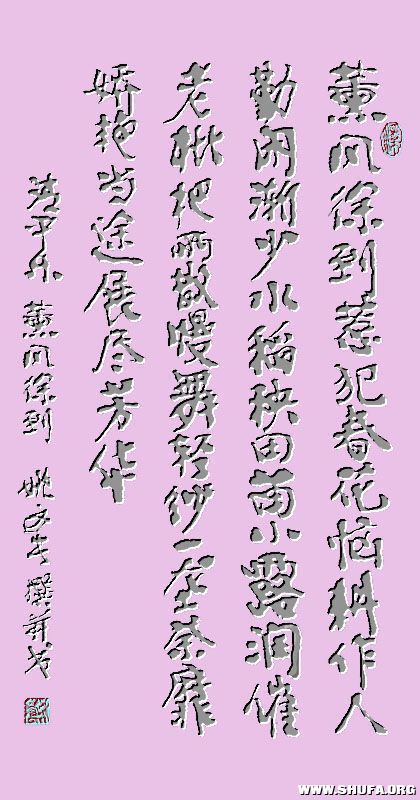 薰风徐到惹犯春花恼耕作人
勤闲渐少水稻秧田苗小露润催
老枇杷雨散慢舞轻纱一座荼靡
娇艳当途展尽芳华
清平乐 薰风徐到 姚 撰并书
WWW.SHUFA.ORG